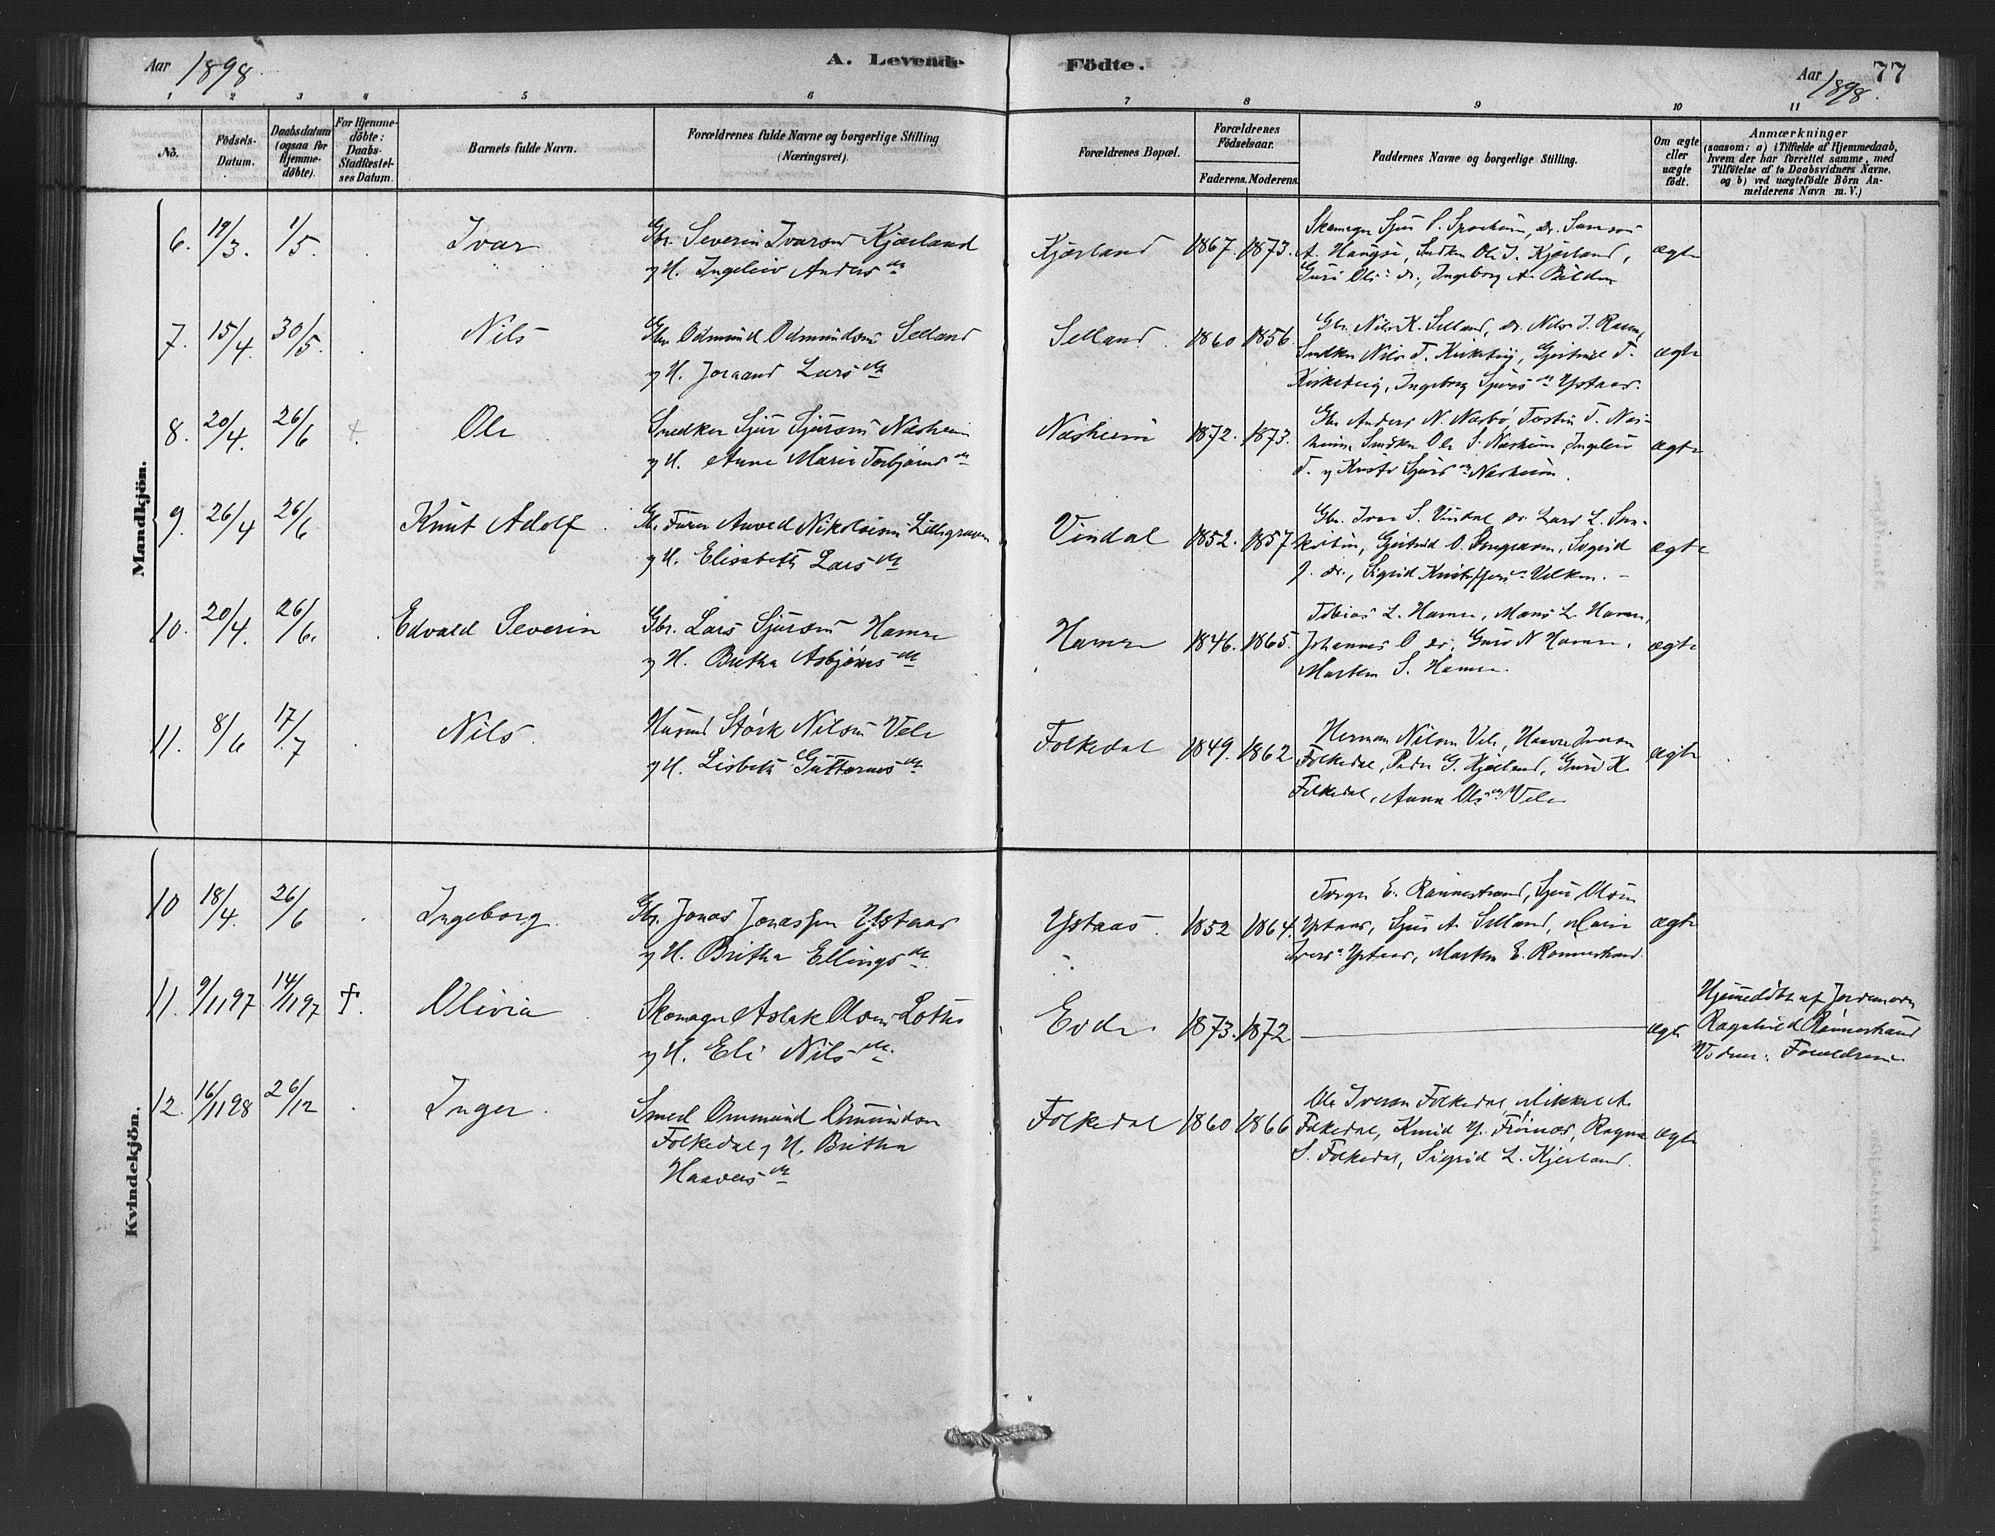 Aar 1898.
A. Levende Födte.
Aar 1898.
77
1 2 3 4 5 6 7 8 9 10 11
No.
Födsels-Datum.
Daabsdatum (ogsaa for Hjemme-döbte).
For Hjemme-döbte: Daabs-Stadfæstel-ses Datum.
Barnets fulde Navn.
Forældrenes fulde Navne og borgerlige Stilling (Næringsvei).
Forældrenes Bopæl.
Forældrenes Födselsaar.
Faderens. Moderens.
Faddernes Navne og borgerlige Stilling.
Om ægte eller uægte födt.
Anmærkninger
(saasom: a) i Tilfælde af Hjemmedaab, hvem der har forrettet samme, med Tilföielse af to Daabsvidners Navne, og b) ved uægtefödte Börn An-melderens Navn m. V.)
Mandkjön.
6. 19/3. 1/5. Ivar Gbr. Severin Ivarsen Kjærland
y H. Ingeleiv Anders dtr
Kjærland 1867. 1873. ægte
A. Haugse, Snedker Ole I. Kjærland,
Guri Ols dr., Ingeborg A.
7. 15/4. 30/5. Nils Gbr Odmund Odmundsen Selland
y H. Joraand Lars dtr
Selland. 1860 1856. ægte
Gbr. Nils K. Selland, dr. Nils J.
Snedker Nils T. Kirkeby, Gjertrud T.
Ingeborg Sjurs dtr Ystaas.
8. 20/4. 26/6 +. Ole Snedker Sjur Sjursen Næsheim
y H. Anne Marie Torbjørns dtr
Næsheim 1872. 1873. ægte
Gbr Anders N. Næsbø, Torstein T. Næs-
heim, Snedker Ole S. Næsheim, Ingeleiv
T. y Sjurs dtr Næsheim.
9. 26/4 26/6 Knut Adolf. Anved Nikolaisen Lillegraven
y H. Elisabeth Lars dtr
Vindal 1852. 1857 ægte
Gbr. Ivar S. Vindal, dr. Lars L.
Gjertrud O.
10. 20/4. 26/6. Edvald Severin Gbr. Lars Sjursen Hamre
y H. Britha Asbjørns dtr
Hamre 1846. 1865. ægte
Tobias L. Hamre, Mons L. Hamre,
Johannes O dr., Guri N Hamre,
S. Hamre.
11. 8/6 17/7 Nils. Husmd Størk Nilsen Vele
y H. Lisbeth Guttorms dtr
Folkedal 1849. 1862 ægte
Herman Nilsen Vele, Iversen
Folkedal, Peder G. Kjærland, Guri K.
Folkedal, Anna Ols dtr Vele
Kvindekjön.
10 18/4. 26/6 Ingeborg. Gbr. Jonas Jonassen Ystaas
y H. Britha Ellings dtr.
Ystaas. 1852 1864. ægte
E. Rønnestrand, Sjur Olsen
Ystaas, Sjur A. Selland, Mari
Ivers dtr Ystaas, E. Rønnestrand.
11. 9/11 97 14/11 97 †. Olivia Skomager Aslak Olsen Lothe
y H. Eli Nils dtr.
Eide. 1873. 1872 ægte
Hjemmedøbt af Jordemoder
Ragnhild Rønnestrand
Vidner: Forældrene
12. 16/11 98 26/12 Inger. Smed Ommund Omundsen
Folkedal y H. Britha
Haavers dtr
Folkedal 1860 1866 ægte
Ole Iversen Folkedal, Mikkel A.
Folkedal, Knud Y. Ragna
S. Folkedal, Sigrid L. Kjerland.